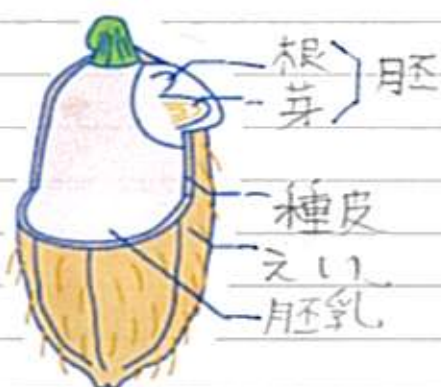 根
芽
胚
種皮
えい
胚乳